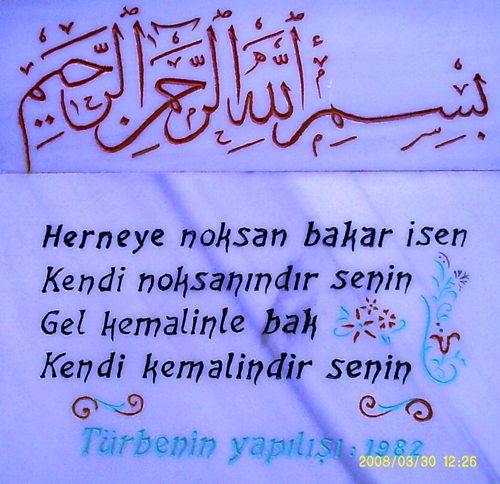 بِسْمِ اللَّهِ الرَّحْمَٰنِ الرَّحِيمِ
Herneye noksan bakar isen
Kendi noksanındır senin
Gel kemalinle bak
Kendi kemalindir senin
Türbenin yapılışı : 1982
2008/03/30 12:26